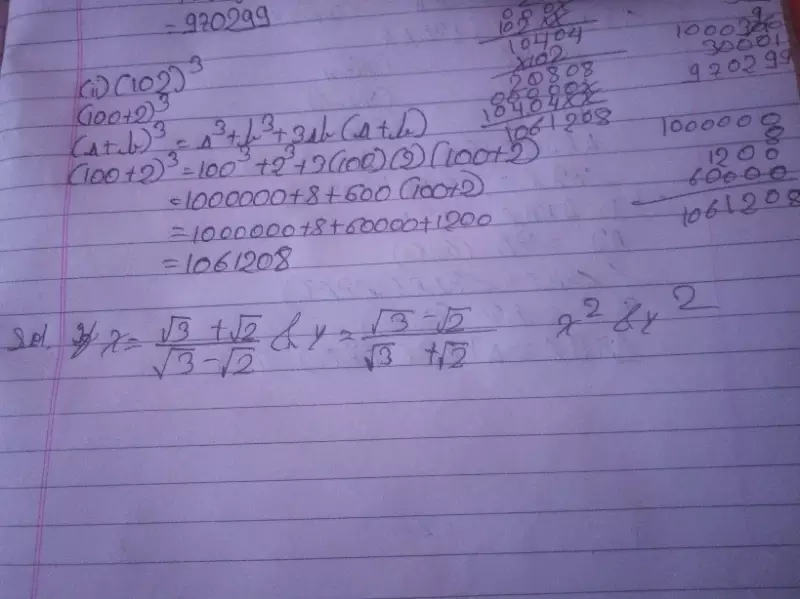 = 970299
(ii) (102)³
(100+2)³
(a+b)³ = a³+b³+3ab(a+b)
(100+2)³ = 100³+2³+3(100)(2)(100+2)
= 1000000+8+600(100+2)
= 1000000+8+60000+1200
= 1061208
10404
×102
20808
1061208
970299
1000000
8
1200
60000
1061208
Sol. x = √3+√2/√3-√2 & y = √3-√2/√3+√2 x² & y²